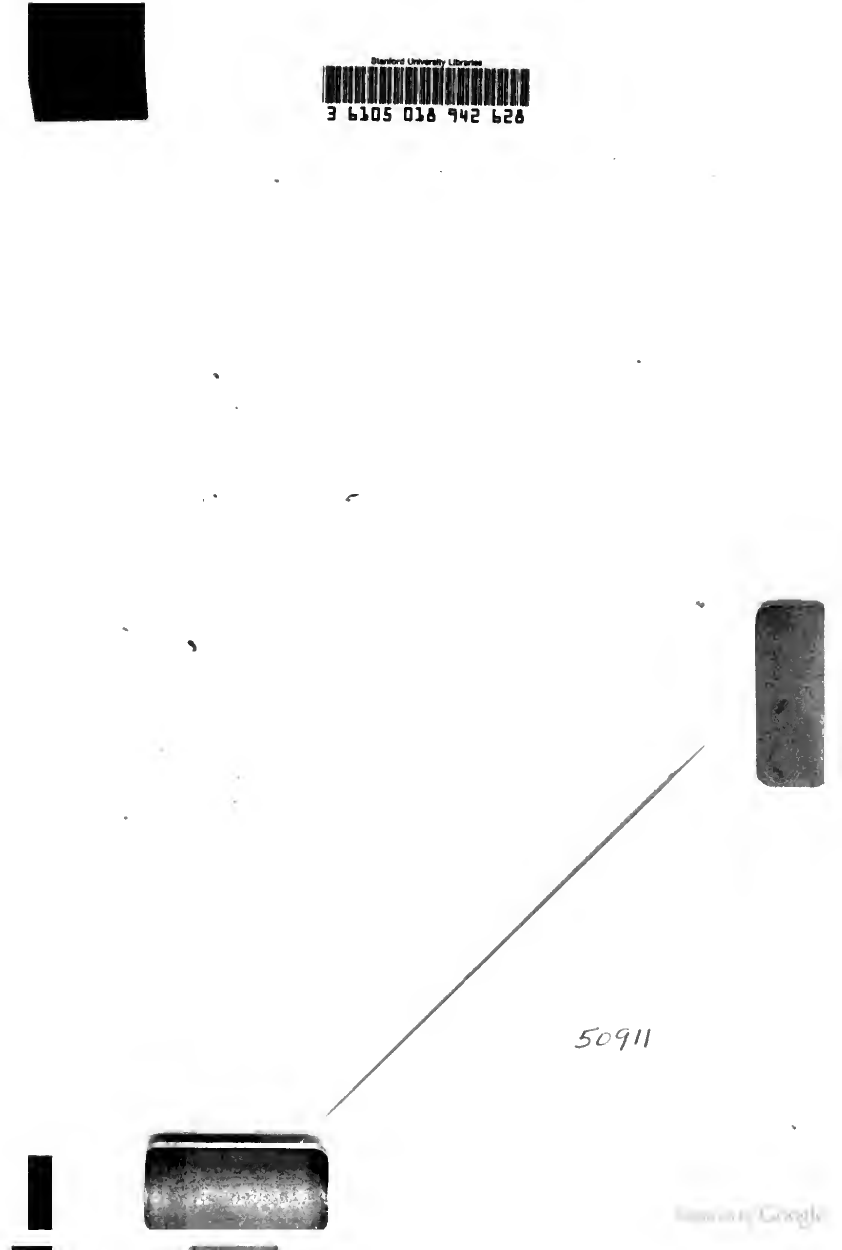 Stanford University Libraries
3 6105 018 942 628
50911
Google